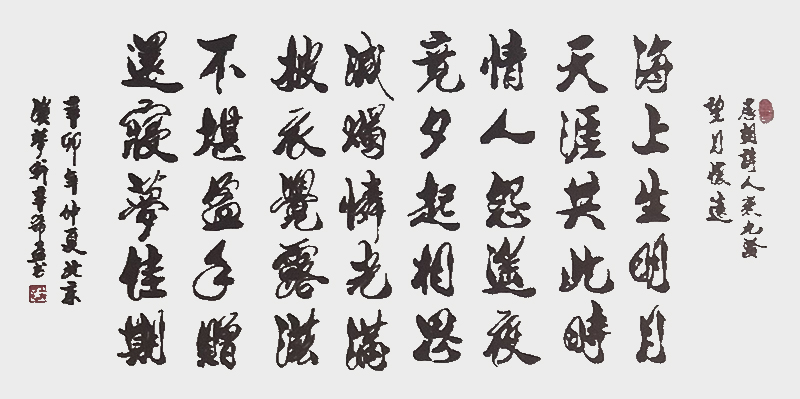 唐朝詩人張九齡
望月懷遠
海上生明月
天涯共此時
情人怨遙夜
竟夕起相思
滅燭憐光滿
披衣覺露滋
不堪盈手贈
還寢夢佳期
辛卯年仲夏北京